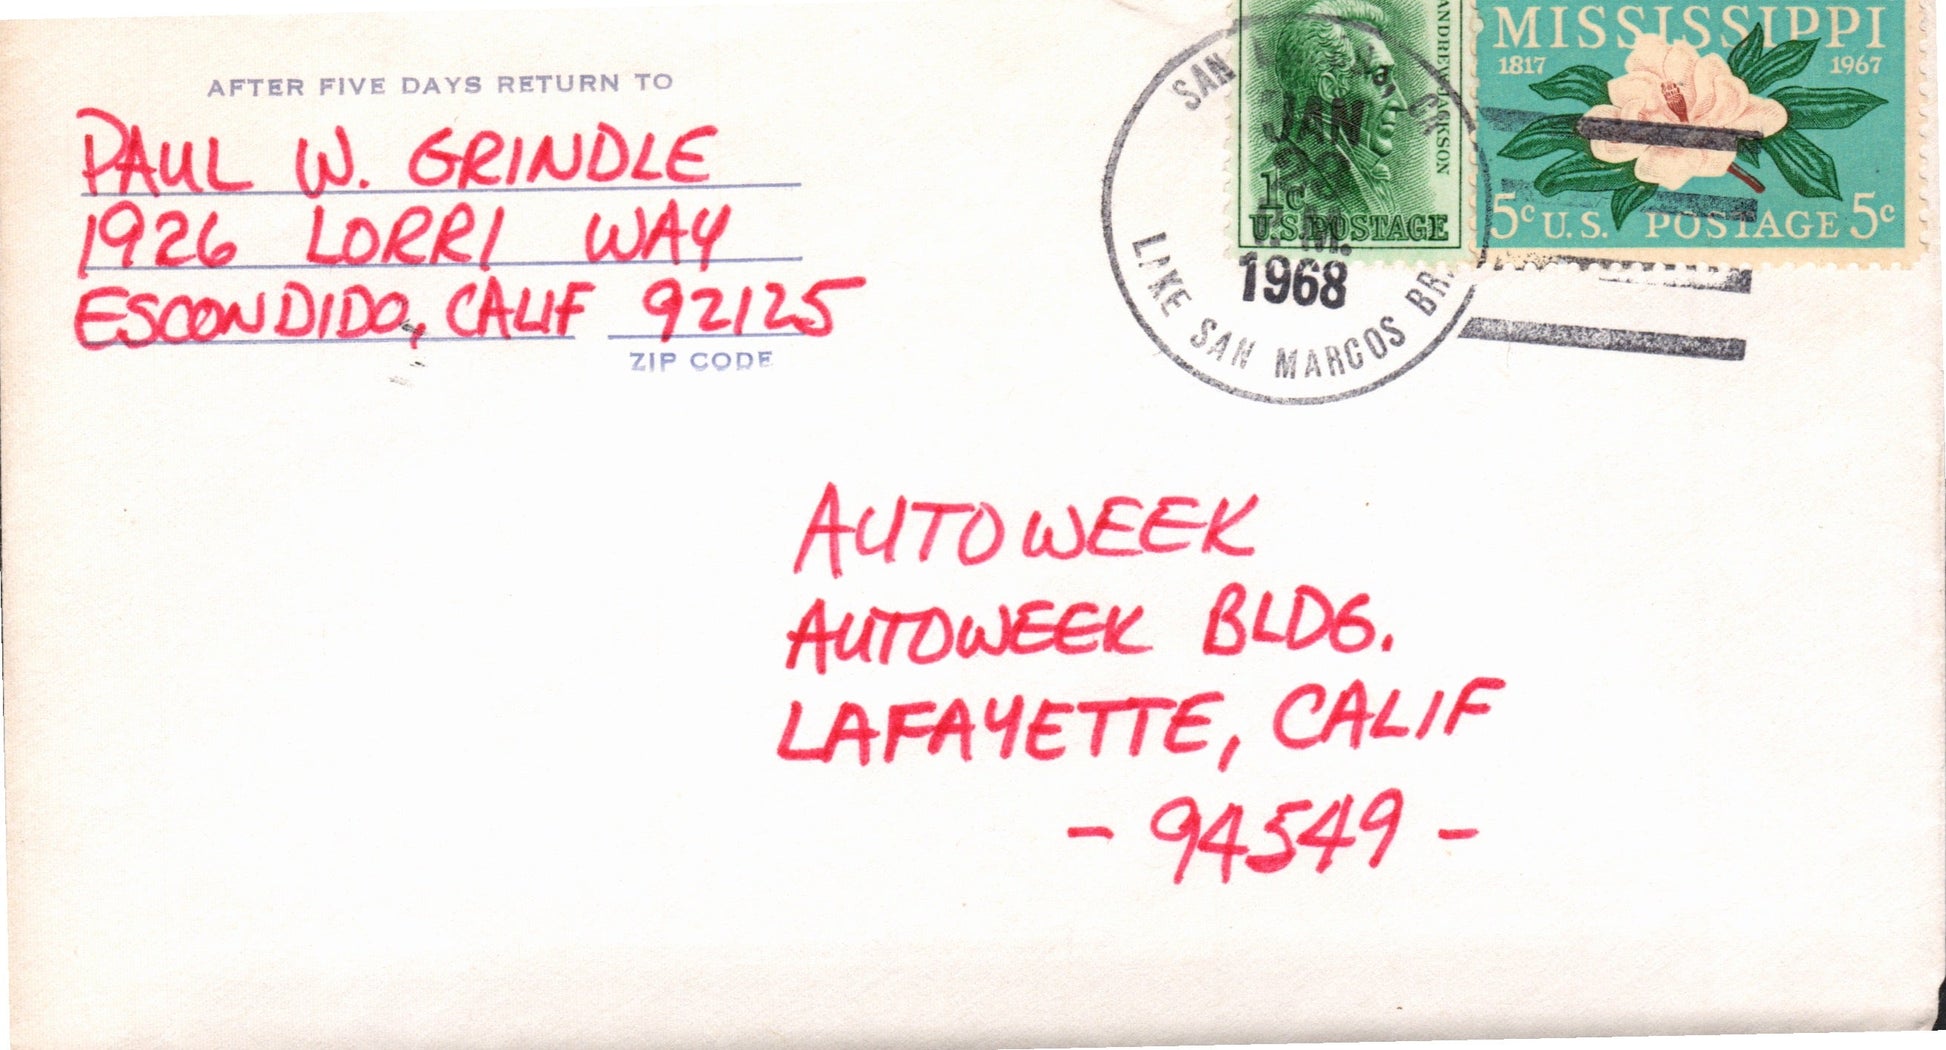 AFTER FIVE DAYS RETURN TO
PAUL W. GRINDLE
1926 LORRI WAY
ESCONDIDO, CALIF 92125
ZIP CODE
SAN
JAN
1968
LAKE SAN MARCOS
ANDREW JACKSON
1c
U.S. POSTAGE
MISSISSIPPI
1817 1967
5c U.S. POSTAGE 5c
AUTOWEEK
AUTOWEEK BLDG.
LAFAYETTE, CALIF
- 94549 -